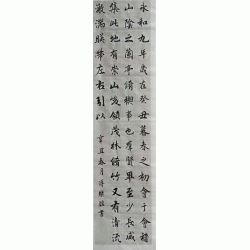 永和九年歲在癸丑暮春之初會于會稽
山陰之蘭亭脩禊事也群賢畢至少長咸
集此地有崇山峻嶺茂林脩竹又有清流
激湍映帶左右引以
辛丑春月書